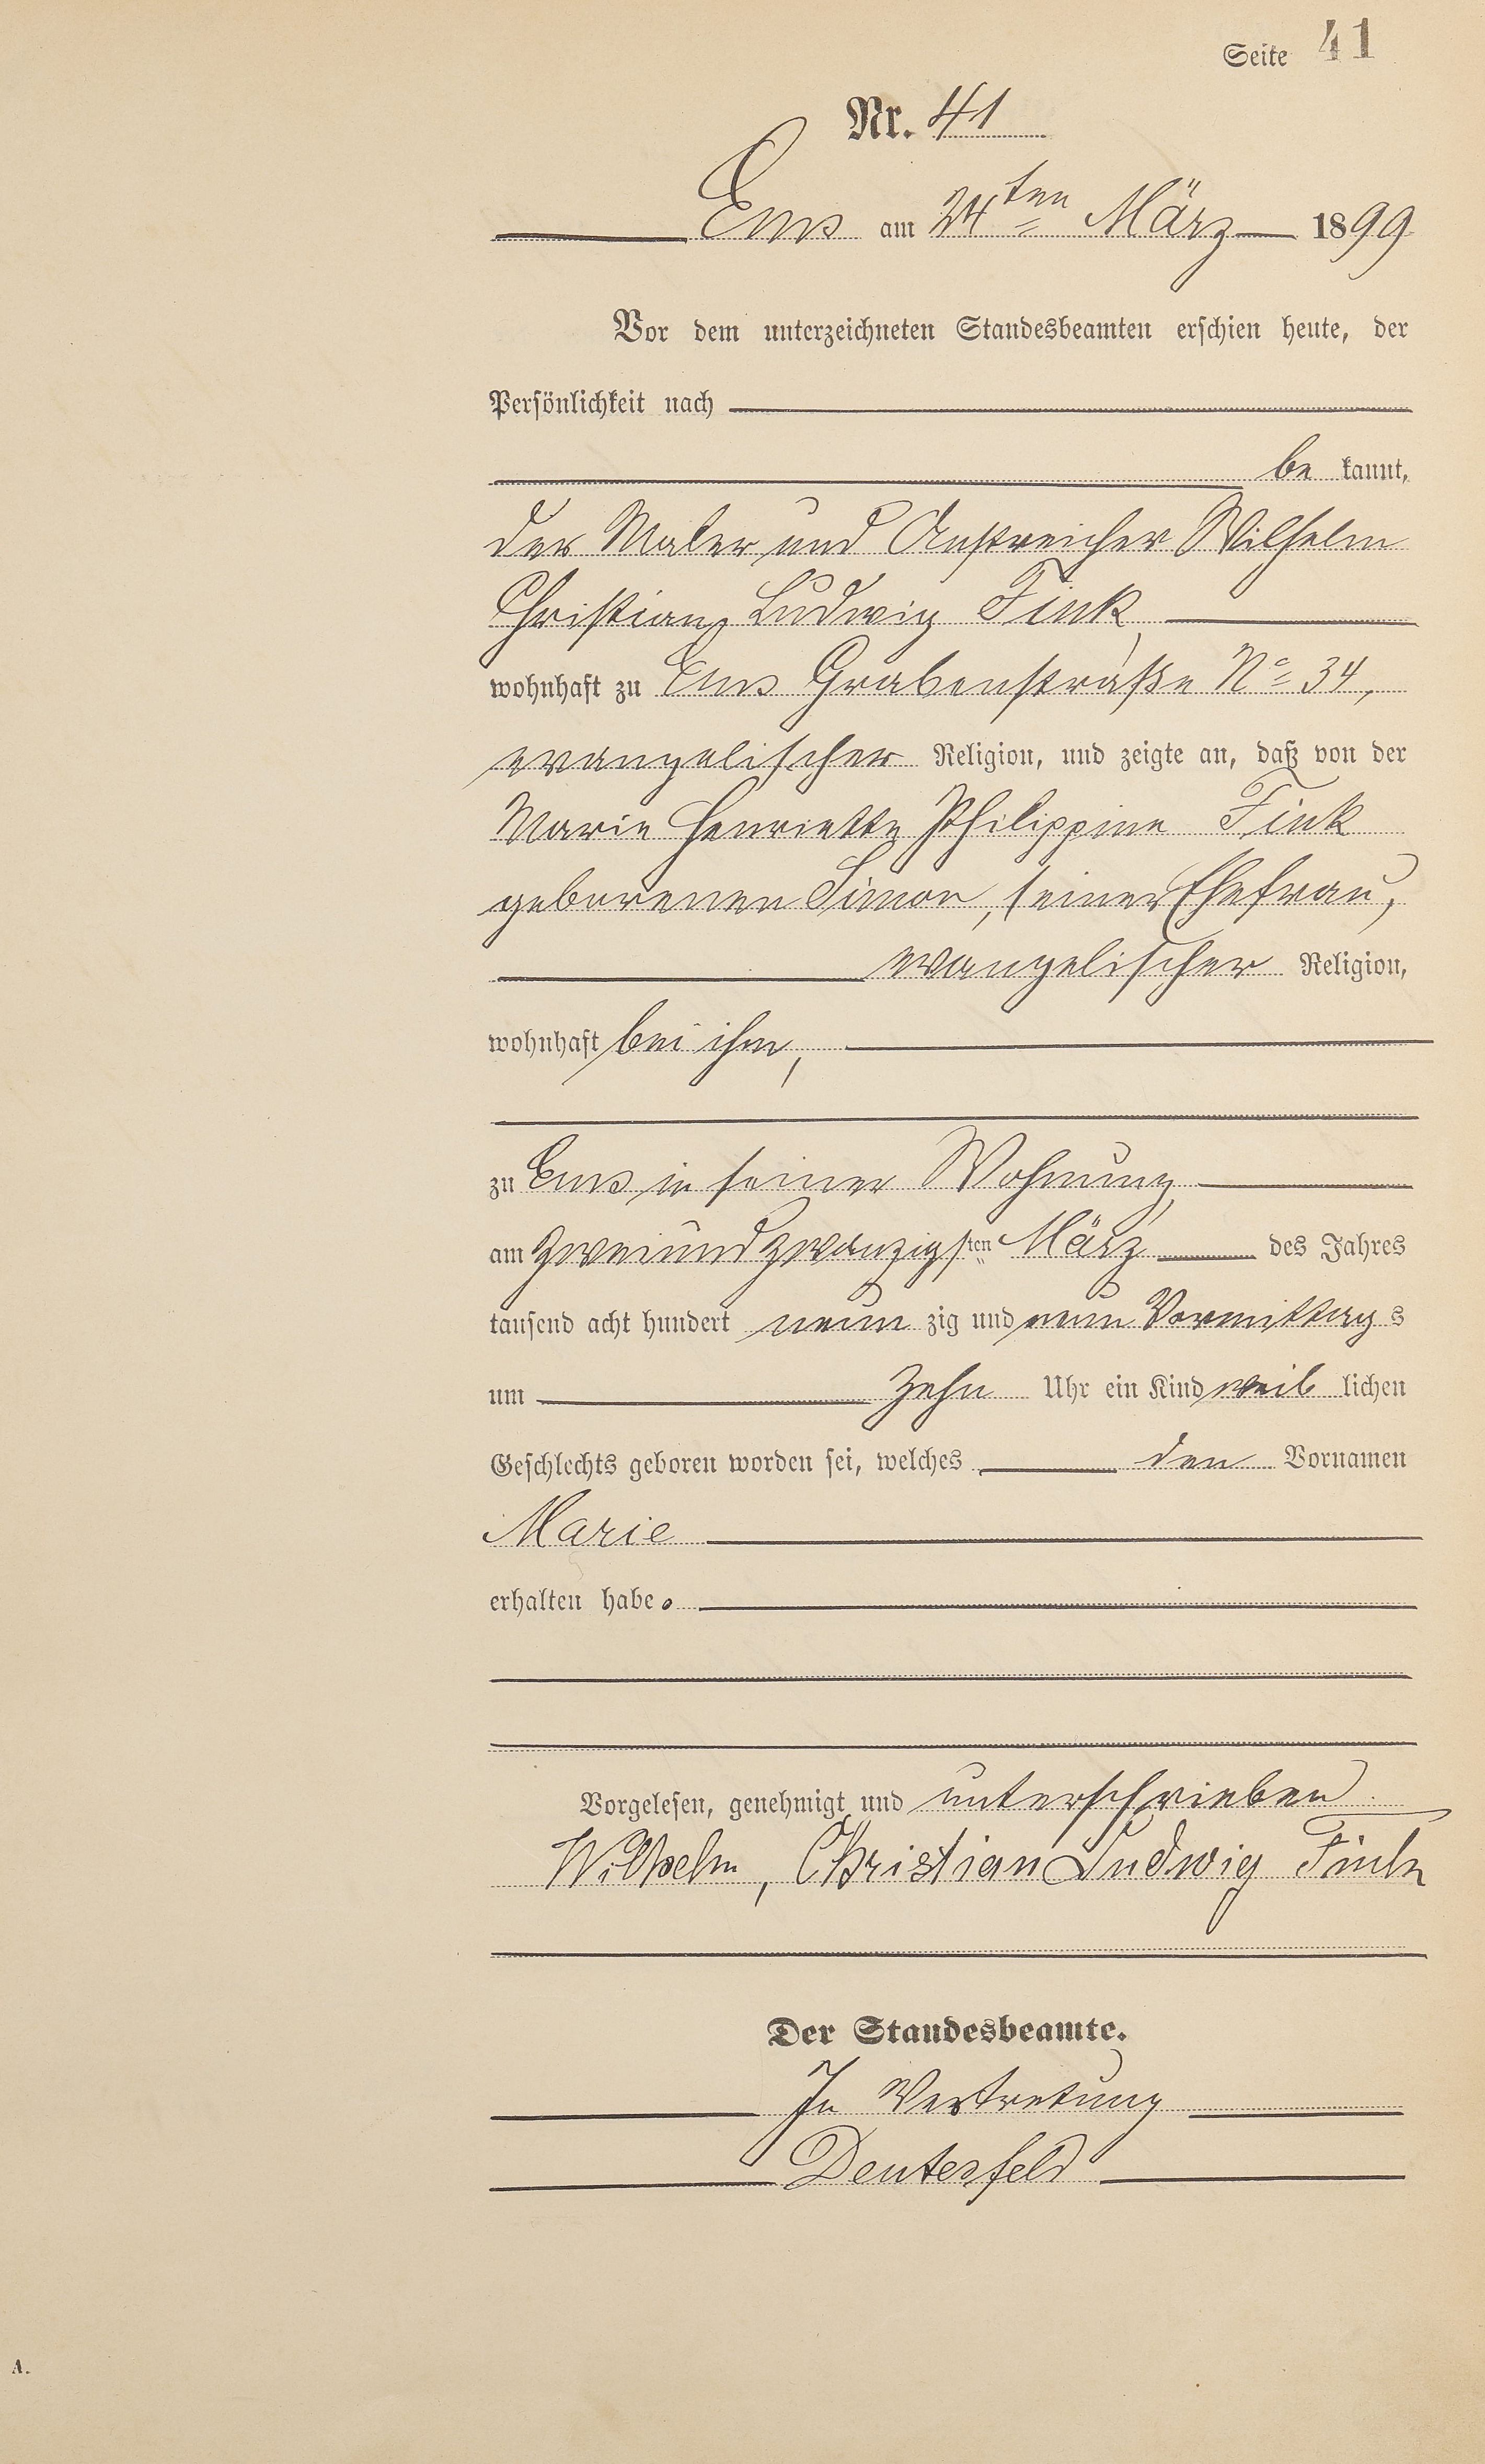 Seite 41
Nr. 41
Ems am 24ten März 1899
Vor dem unterzeichneten Standesbeamten erschien heute, der
Persönlichkeit nach
be kannt,
der Maler und Anstreicher Wilhelm
Christian Ludwig Fink,
wohnhaft zu Ems Grabenstraße No 34,
evangelischer Religion, und zeigte an, daß von der
Marie Henriette Philippine Fink
geborenen Simon, seiner Ehefrau,
evangelischer Religion,
wohnhaft bei ihm,
zu Ems in seiner Wohnung,
am zweiundzwanzigsten März des Jahres
tausend acht hundert neun zig und neun Vormittag s
um zehn Uhr ein Kind weib lichen
Geschlechts geboren worden sei, welches den Vornamen
Marie
erhalten habe.
Vorgelesen, genehmigt und unterschrieben
Wilhelm, Christian Ludwig Fink
Der Standesbeamte.
In Vertretung
Deutesfeld
A.